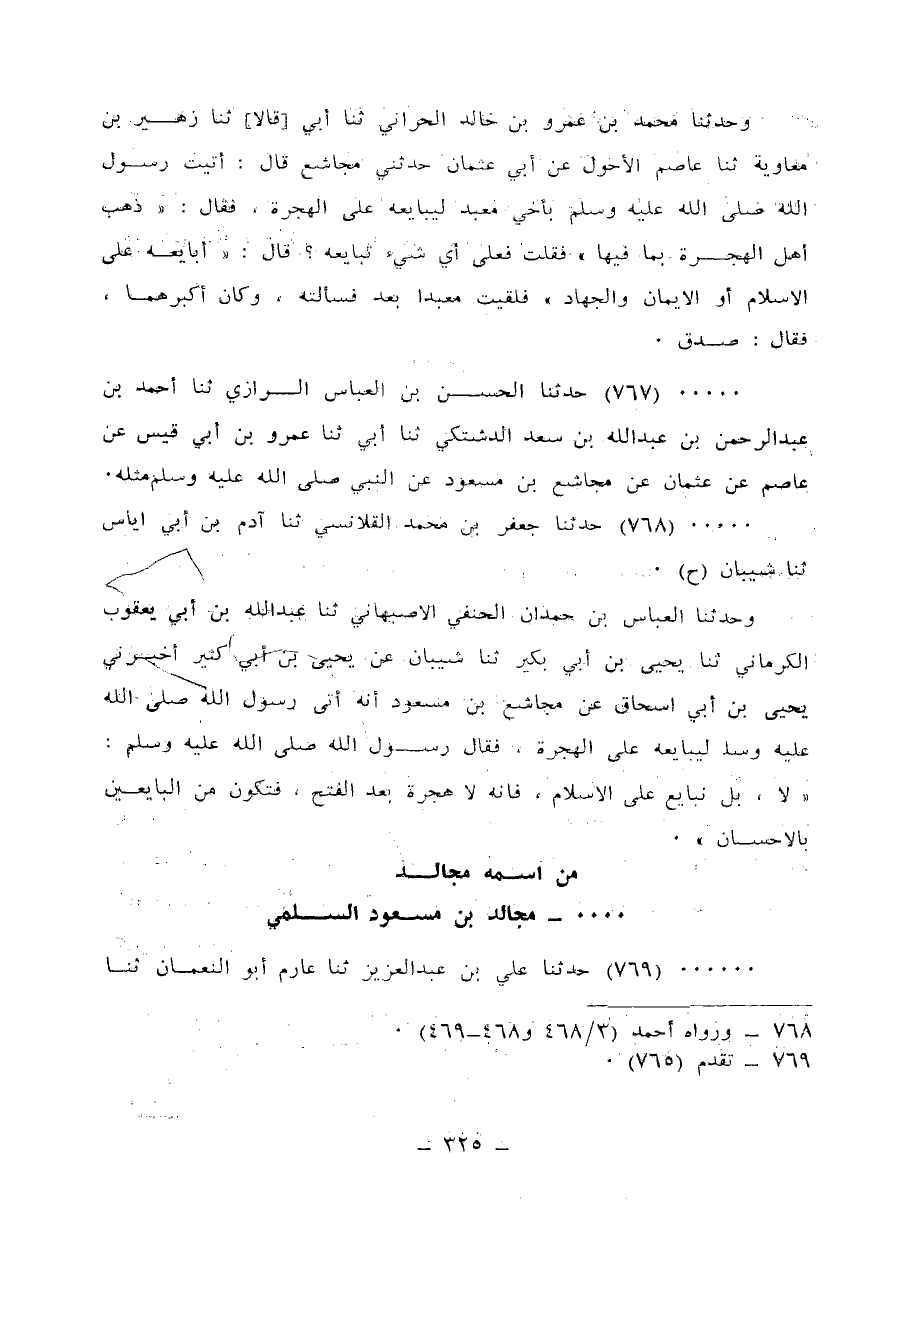 وحدثنا محمد بن عمرو بن خالد الحراني ثنا أبي [قالا] ثنا زهير بن
معاوية ثنا عاصم الأحول عن أبي عثمان حدثني مجاشع قال : أتيت رسول
الله صلى الله عليه وسلم بأخي معبد ليبايعه على الهجرة ، فقال : « ذهب
أهل الهجرة بما فيها » فقلت فعلى أي شيء تبايعه ؟ قال : « أبايعه على
الاسلام أو الايمان والجهاد » فلقيت معبدا بعد فسألته ، وكان أكبرهما ،
فقال : صدق ٠
٠٠٠٠٠ (٧٦٧) حدثنا الحسن بن العباس الرازي ثنا أحمد بن
عبدالرحمن بن عبدالله بن سعد الدشتكي ثنا أبي ثنا عمرو بن أبي قيس عن
عاصم عن عثمان عن مجاشع بن مسعود عن النبي صلى الله عليه وسلم مثله٠
٠٠٠٠٠ (٧٦٨) حدثنا جعفر بن محمد القلانسي ثنا آدم بن أبي اياس
ثنا شيبان (ح) ٠
وحدثنا العباس بن حمدان الحنفي الاصبهاني ثنا عبدالله بن أبي يعقوب
الكرماني ثنا يحيى بن أبي بكير ثنا شيبان عن يحيى بن أبي كثير أخبرني
يحيى بن أبي اسحاق عن مجاشع بن مسعود أنه أتى رسول الله صلى الله
عليه وسلـ ليبايعه على الهجرة ، فقال رسول الله صلى الله عليه وسلم :
« لا ، بل نبايع على الاسلام ، فانه لا هجرة بعد الفتح ، فتكون من البايعين
بالاحسان » ٠
من اسمه مجالد
٠٠٠٠ ـ مجالد بن مسعود السلمي
٠٠٠٠٠٠ (٧٦٩) حدثنا علي بن عبدالعزيز ثنا عارم أبو النعمان ثنا
٧٦٨ ـ ورواه أحمد (٤٦٨/٣ و٤٦٨ـ٤٦٩) ٠
٧٦٩ ـ تقدم (٧٦٥) ٠
ـ ٣٢٥ ـ